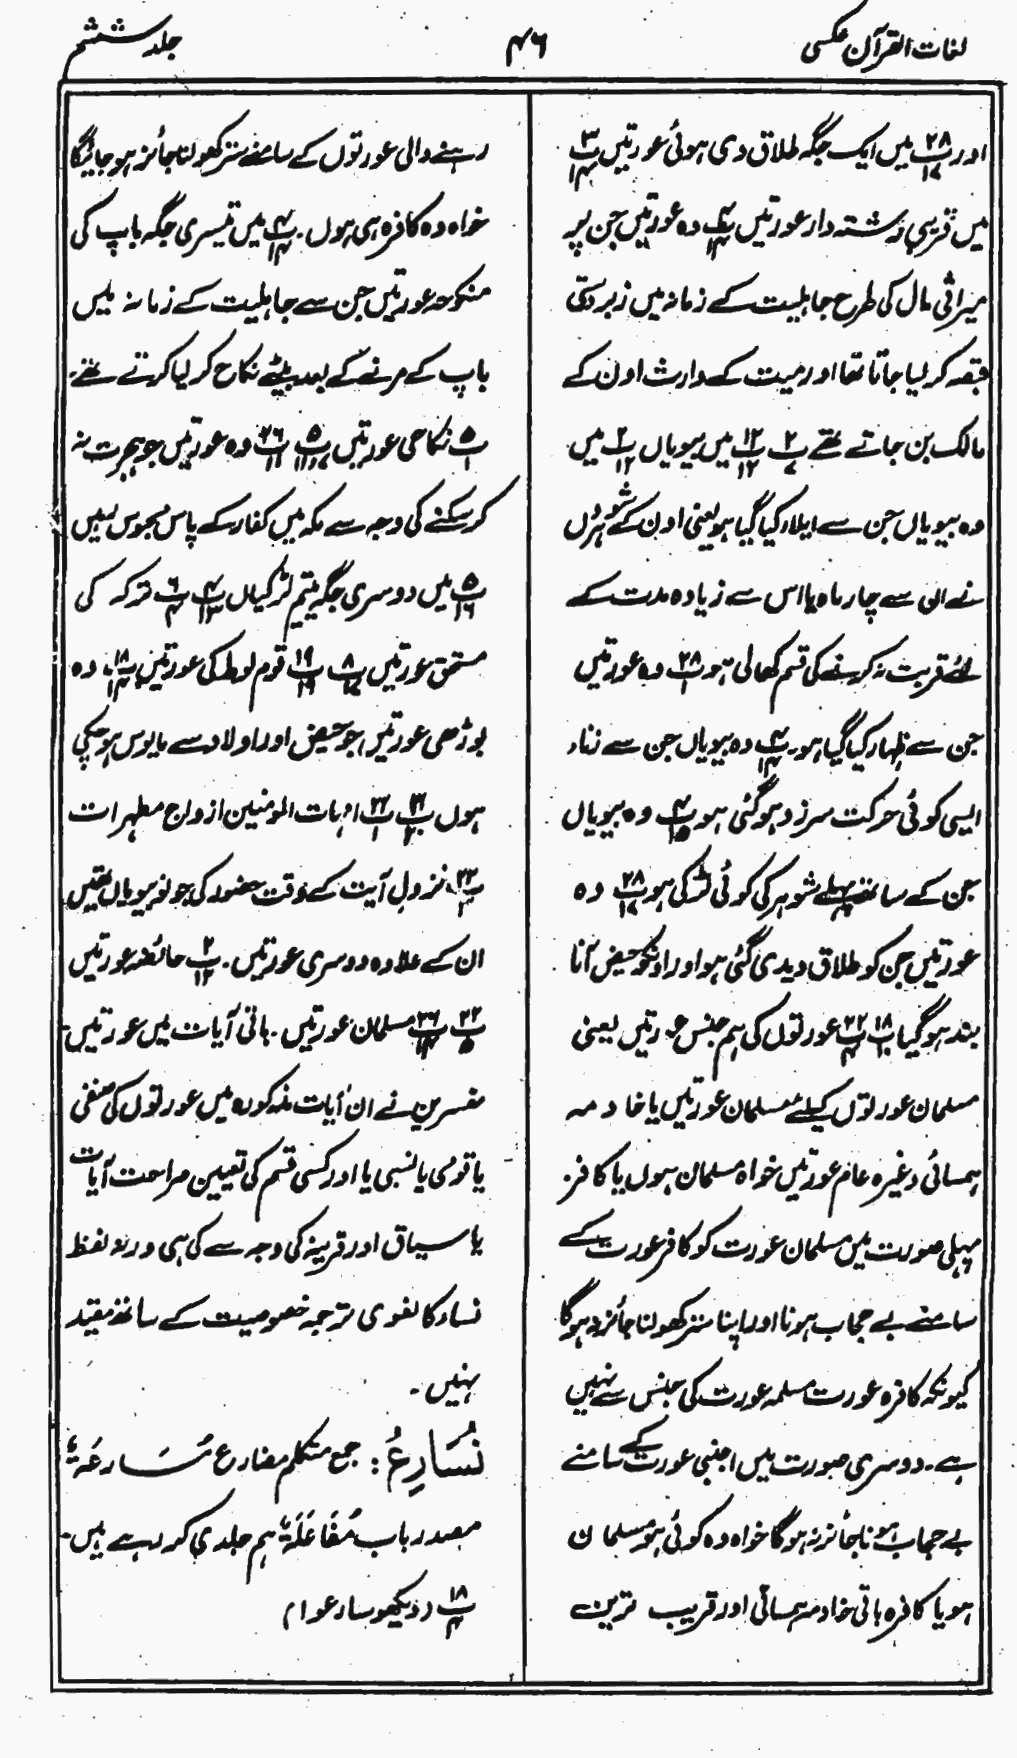 لغات القرآن عکسی
۴۶
جلد ششم
اور پ۲۸/۱۷ میں ایک جگہ طلاق دی ہوئی عورتیں پ۳/۱۴
میں قریبی رشتہ دار عورتیں پ۴/۱۴ وہ عورتیں جن پر
میراثی مال کی طرح جاہلیت کے زمانہ میں زبردستی
قبضہ کر لیا جاتا تھا اور میت کے وارث اون کے
مالک بن جاتے تھے پ۲/۷ پ۱۲/۱۲ میں بیویاں پ۲/۱۲ میں
وہ بیویاں جن سے ایلاء کیا گیا ہو یعنی اون کے شوہروں
نے ان سے چار ماہ یا اس سے زیادہ مدت کے
لئے قربت نہ کرنے کی قسم کھالی ہو پ۲۸/۱ وہ عورتیں
جن سے ظہار کیا گیا ہو۔ پ۴/۱۴ وہ بیویاں جن سے زناء
ایسی کوئی حرکت سرزد ہو گئی ہو پ۴/۱۵ وہ بیویاں
جن کے ساتھ پہلے شوہر کی کوئی لڑکی ہو پ۲۸/۱۷ وہ
عورتیں جن کو طلاق دیدی گئی ہو اور اونکو حیض آنا
بند ہو گیا پ۱۸/۱۰ پ۲۲/۴ عورتوں کی ہم جنس عورتیں یعنی
مسلمان عورتوں کیلئے مسلمان عورتیں یا خادمہ
ہمسائی وغیرہ عام عورتیں خواہ مسلمان ہوں یا کافر۔
پہلی صورت میں مسلمان عورت کو کافر عورت کے
سامنے بے حجاب ہونا اور اپنا ستر کھولنا جائز نہ ہوگا
کیونکہ کافرہ عورت مسلمہ عورت کی جنس سے نہیں
ہے۔ دوسری صورت میں اجنبی عورت کے سامنے
بے حجاب ہونا جائز نہ ہوگا خواہ وہ کوئی ہو مسلمان
ہو یا کافرہ ہاتی خادمہ ہمسائی اور قریب ترین
رہنے والی عورتوں کے سامنے ستر کھولنا جائز ہو جائیگا
خواہ وہ کافرہ ہی ہوں۔ پ۴/۱۴ میں تیسری جگہ باپ کی
منکوحہ عورتیں جن سے جاہلیت کے زمانہ میں
باپ کے مرنے کے بعد بیٹے نکاح کر لیا کرتے تھے۔
پ۵/۱ نکاحی عورتیں پ۵/۱۱،۱۷ پ۲۶/۱۱ وہ عورتیں جو ہجرت نہ
کر سکنے کی وجہ سے مکہ میں کفار کے پاس محبوس تھیں
پ۵/۱۶ میں دوسری جگہ یتیم لڑکیاں پ۴/۱۳ پ۶/۴ ترکہ کی
مستحق عورتیں پ۸/۱۷ پ۱۹/۱۹ قوم لوط کی عورتیں پ۱۸/۱۴ وہ
بوڑھی عورتیں جو حیض اور اولاد سے مایوس ہو چکی
ہوں پ۲۱/۲۰ پ۲۲/۱ امہات المومنین ازواج مطہرات
پ۲۲/۳ نزول آیت کے وقت حضور کی جو نو بیویاں تھیں
ان کے علاوہ دوسری عورتیں۔ پ۲/۱۲ حائضہ عورتیں
پ۲۲/۵ پ۲۶/۱۴ مسلمان عورتیں۔ باقی آیات میں عورتیں۔
مفسرین نے ان آیات مذکورہ میں عورتوں کی صنفی
یا قومی یا نسبی یا اور کسی قسم کی تعیین صراحت آیات
یا سیاق اور قرینہ کی وجہ سے کی ہی ورنہ لفظ
نساء کا لغوی ترجمہ خصوصیت کے ساتھ مقید
نہیں۔
نُسَارِعُ : جمع متکلم مضارع مُسَارعَۃٌ
مصدر باب مُفَاعَلَۃٌ ہم جلدی کر رہے ہیں۔
پ۱۸/۴ (دیکھو سارعوا)